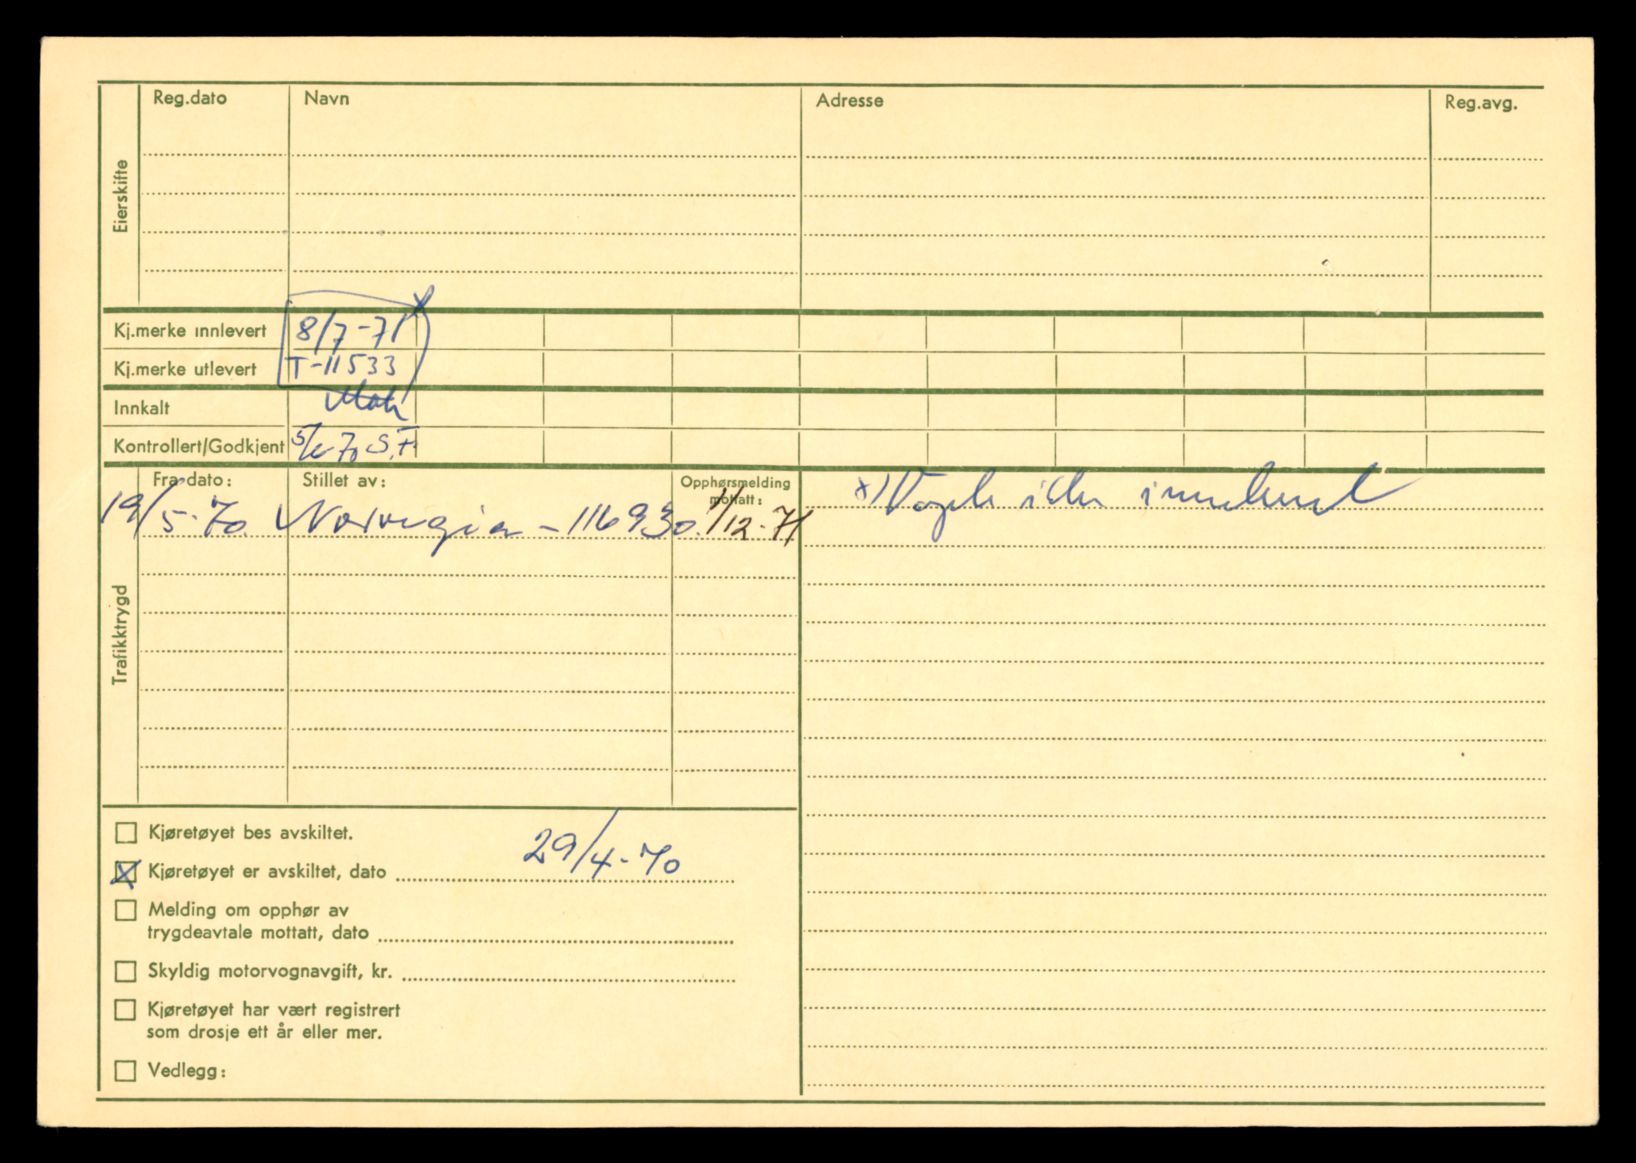 Reg.dato Navn Adresse Reg.avg.
Eierskifte
Kj.merke innlevert 8/7-71 x
Kj.merke utlevert T-11533
Innkalt
Kontrollert/Godkjent S.F.
Trafikktrygd
Fra dato: Stillet av: Opphørsmelding
mottatt:
19/5-70 Norvegia - 116930 1/12-71
x)
Kjøretøyet bes avskiltet.
X Kjøretøyet er avskiltet, dato 29/4-70
Melding om opphør av
trygdeavtale mottatt, dato
Skyldig motorvognavgift, kr.
Kjøretøyet har vært registrert
som drosje ett år eller mer.
Vedlegg: